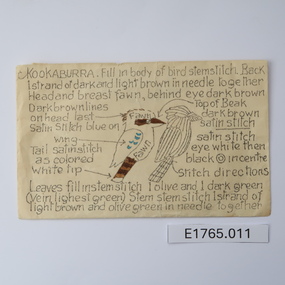 KOOKABURRA. Fill in body of bird stemstitch. Back
1 strand of dark and light brown in needle together
Head and breast fawn, behind eye dark brown
Dark brown lines
on head last
satin stitch blue on
wing
Tail satinstitch
as colored
white tip
Fawn
Fawn
Top of Beak
dark brown
satin stitch
satin stitch
eye white then
black in centre
stitch directions
Leaves fill in stemstitch 1 olive and 1 dark green
(Vein lighest green) Stem stemstitch 1 strand of
light brown and olive green in needle together
E1765.011